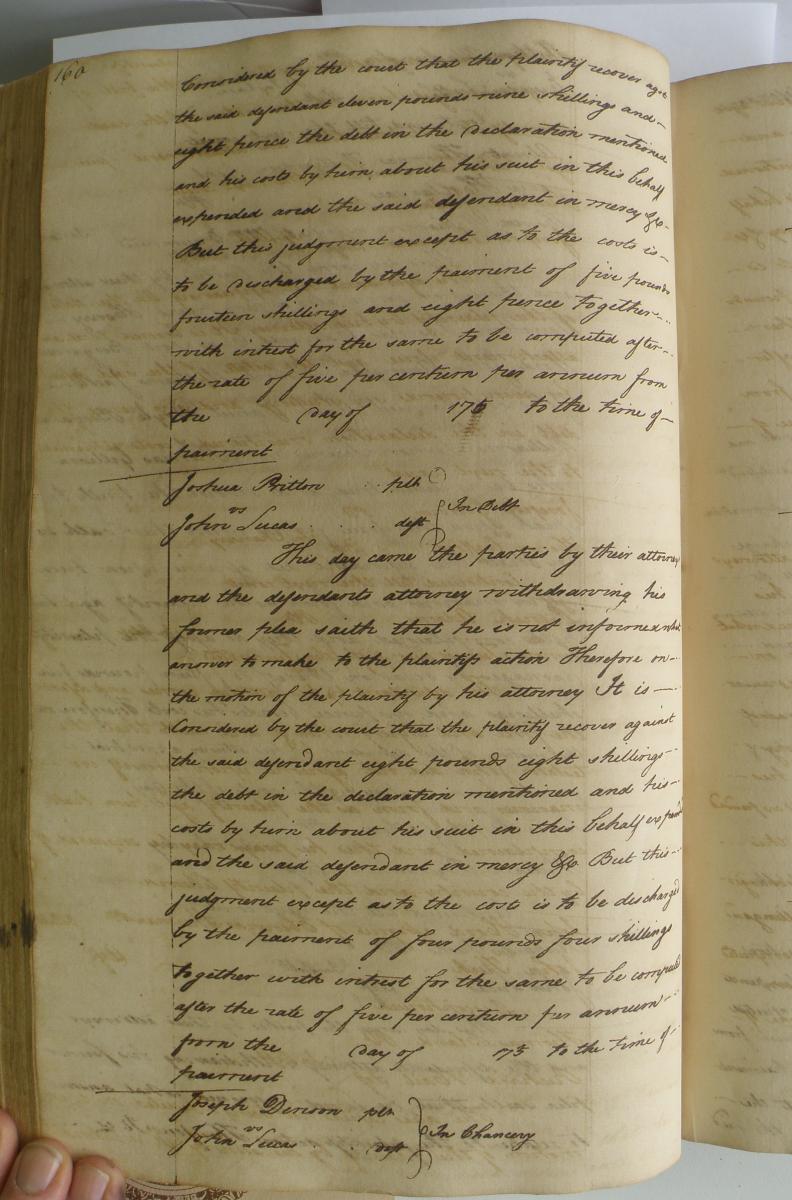 160
Considered by the court that the plaintif recover agst
the said defendant eleven pounds nine shillings and
eight pence the debt in the Declaration mentioned
and his costs by him about his suit in this behalf
expended and the said defendant in mercy &c
But this judgment except as to the costs is
to be Discharged by the paiment of five pounds
fourteen shillings and eight pence together
with intrest for the same to be computed after
the rate of five per centum per annum from
the Day of 175 to the time of
paiment
Joshua Pritton plt
vs In Debt
John Lucas deft
This day came the parties by their attorney
and the defendants attorney withdrawing his
former plea saith that he is not informed what
answer to make to the plaintifs action Therefore on
the motion of the plaintif by his attorney It is
Considered by the court that the plaintif recover against
the said defendant eight pounds eight shillings
the debt in the declaration mentioned and his
costs by him about his suit in this behalf
and the said defendant in mercy &c But this
judgment except as to the cost is to be discharged
by the paiment of four pounds four shillings
together with intrest for the same to be computed
after the rate of five per centum per annum
from the Day of 175 to the time of
paiment
Joseph Denson plt
vs In Chancery
John Lucas deft